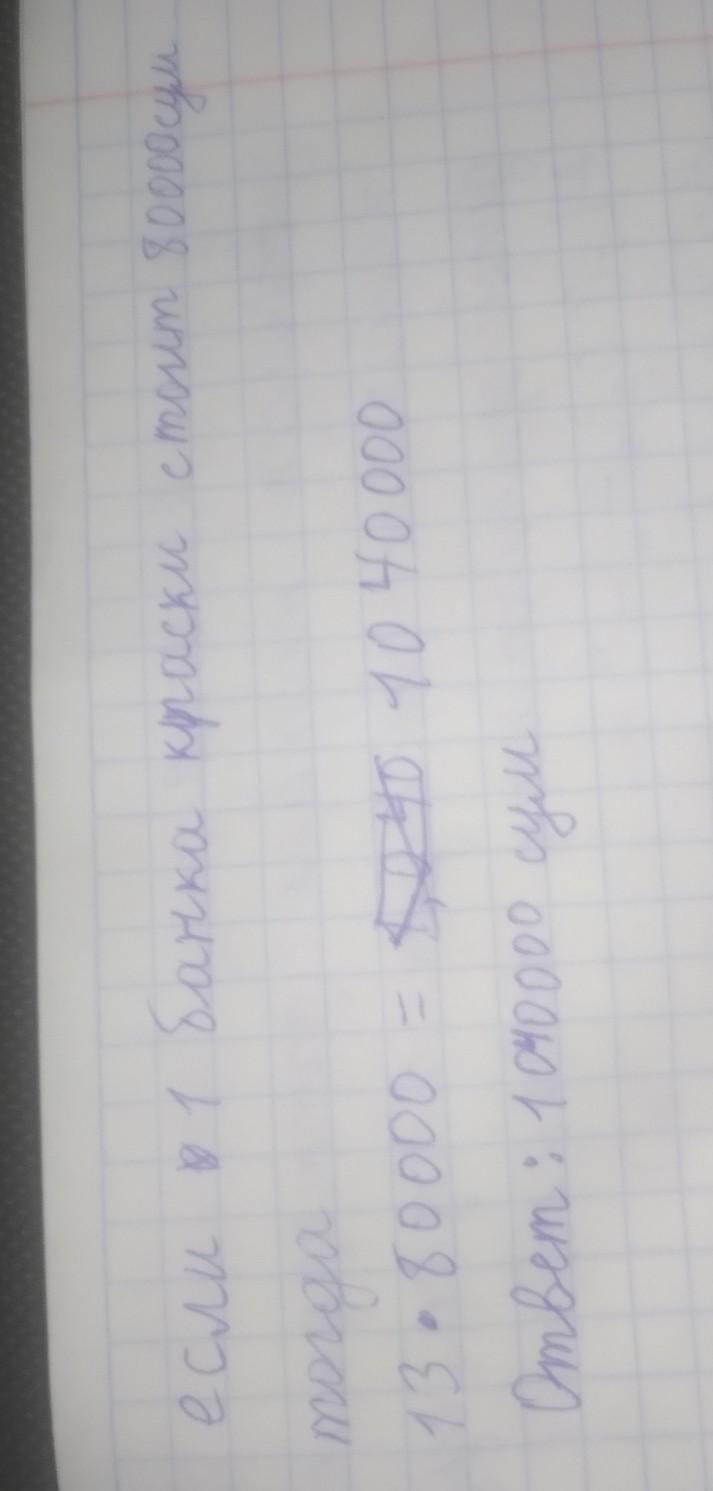 если 1 банка краски стоит 80000сум
тогда
13 • 80000 = 10 40000
Ответ: 1040000 сум